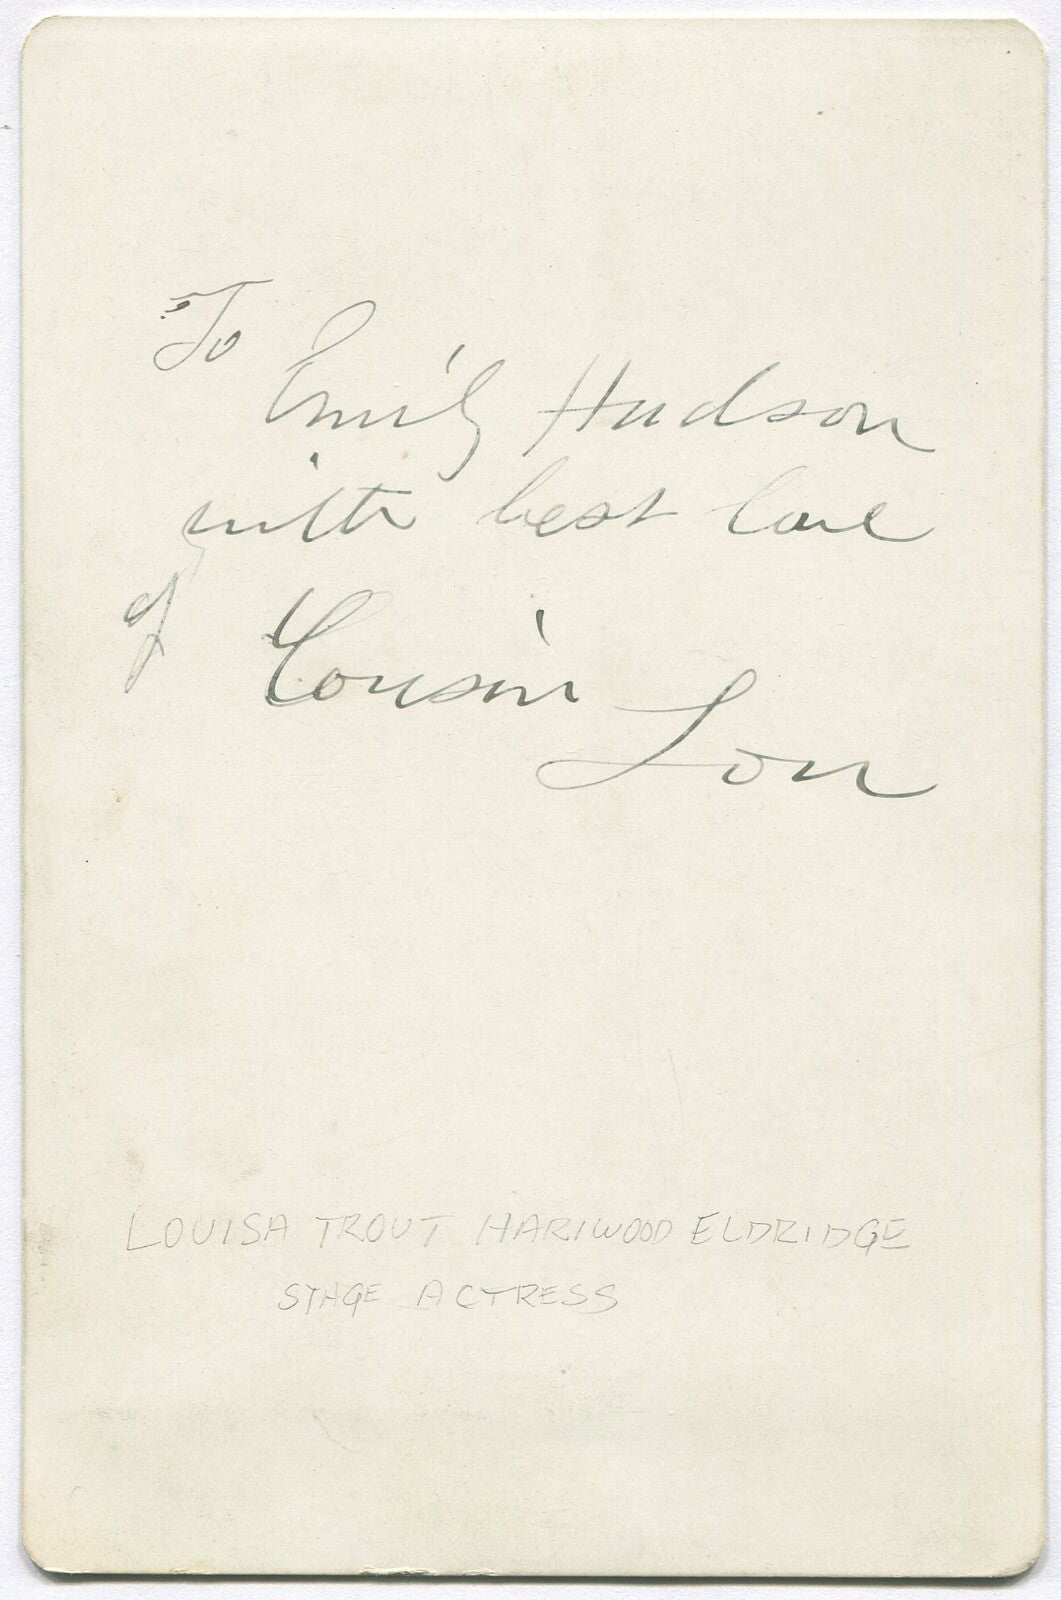 To
Emily Hudson
with best love
of Cousin
Lou
LOUISA TROUT HARIWOOD ELDRIDGE
STAGE ACTRESS